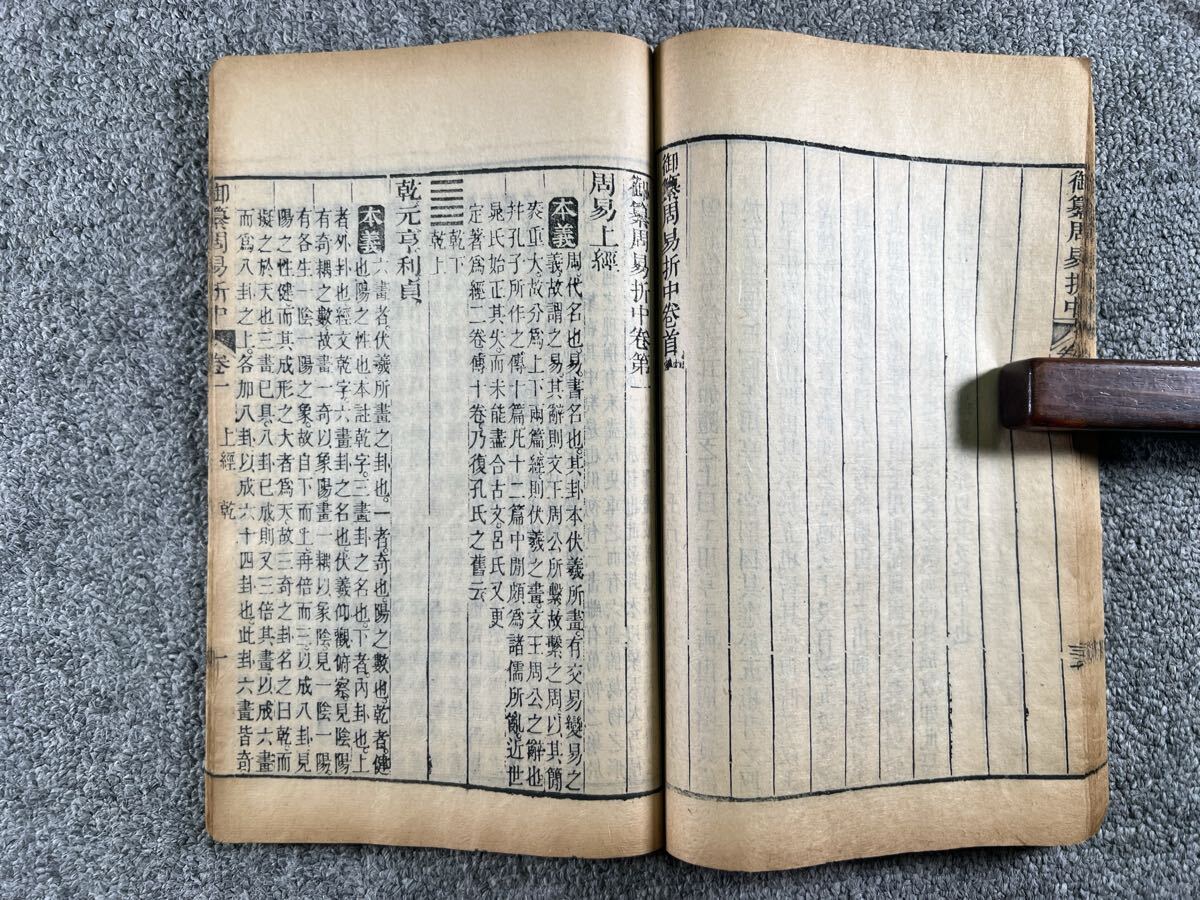 御纂周易折中
御纂周易折中卷首
御纂周易折中卷第一
周易上經
本義
周代名也易書名也其卦本伏羲所畫有交易變易之
義故謂之易其辭則文王周公所繫故繫之周以其簡
袠重大故分爲上下兩篇經則伏羲之畫文王周公之辭也
幷孔子所作之傳十篇凡十二篇中閒頗爲諸儒所亂近世
晁氏始正其失而未能盡合古文呂氏又更
定著爲經二卷傳十卷乃復孔氏之舊云
乾下
乾上
乾元亨利貞
本義
六畫者伏羲所畫之卦也一者奇也陽之數也乾者健
也陽之性也本註乾字三畫卦之名也下者內卦也上
者外卦也經文乾字六畫卦之名也伏羲仰觀俯察見陰陽
有奇耦之數故畫一奇以象陽畫一耦以象陰見一陰一陽
有各生一陰一陽之象故自下而上再倍而三以成八卦見
陽之性健而其成形之大者爲天故三奇之卦名之曰乾而
擬之於天也三畫已具八卦已成則又三倍其畫以成六畫
而爲八卦之上各加八卦以成六十四卦也此卦六畫皆奇
御纂周易折中
卷一
上經 乾
一